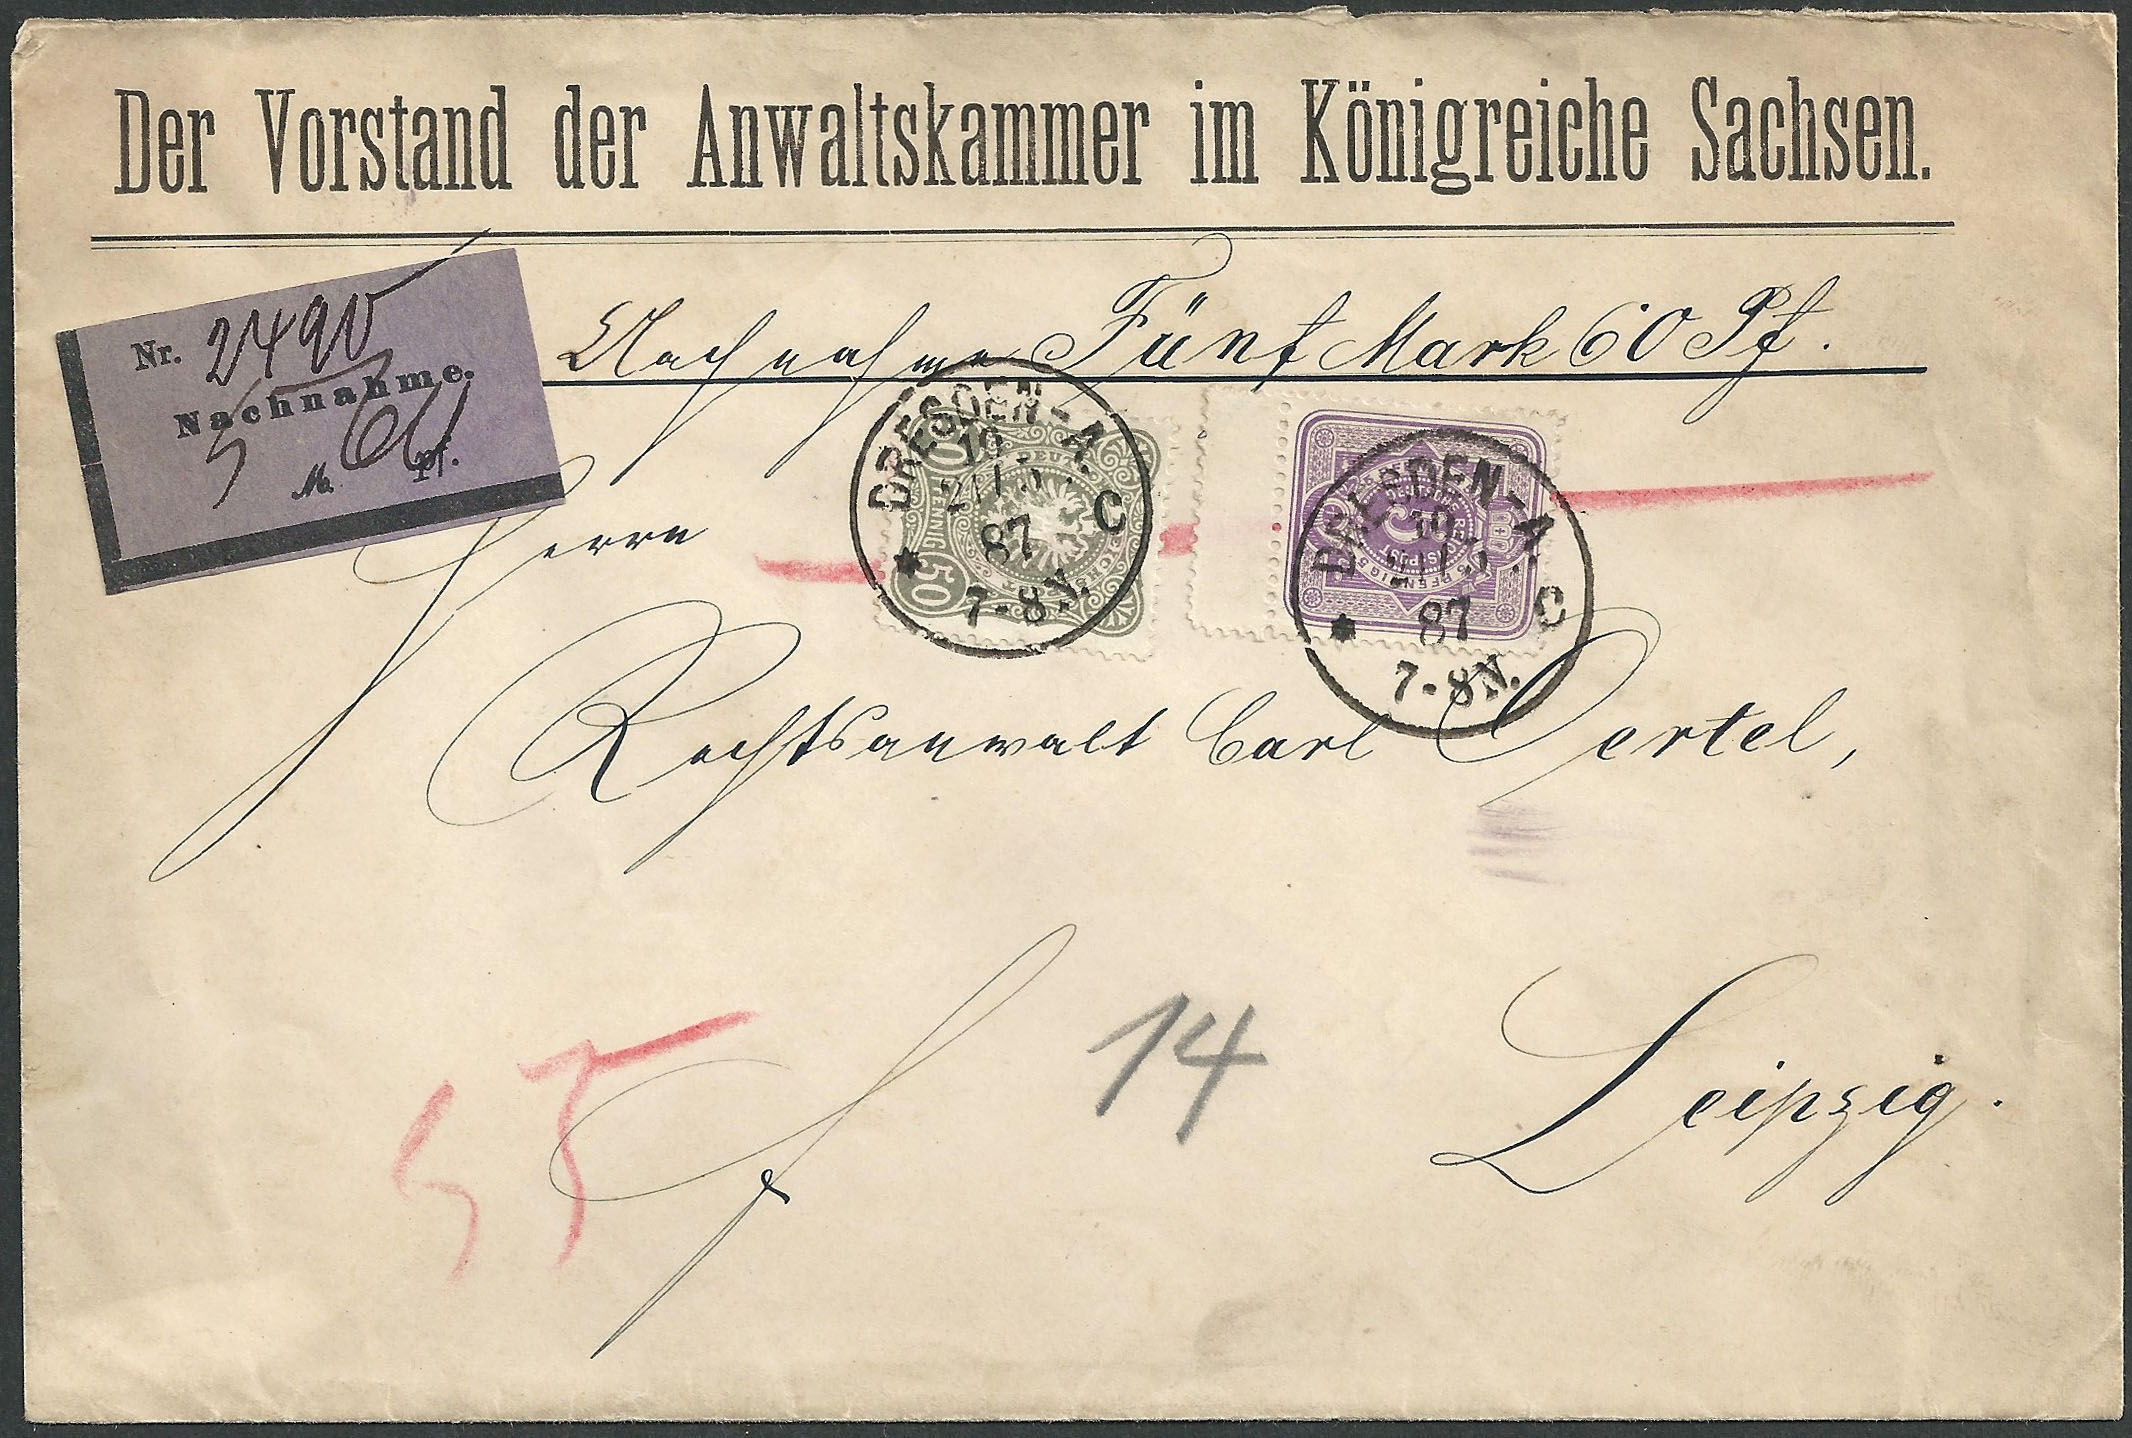 Der Vorstand der Anwaltskammer im Königreiche Sachsen.
Nr. 2490
Nachnahme.
5 M. 60 Pf.
Nachnahme Fünf Mark 60 Pf.
DRESDEN-A.
10
87
C
7-8 N.
50
DRESDEN-A.
10
87
C
7-8 N.
5
Herrn
Rechtsanwalt Carl Oertel,
55
14
Leipzig.